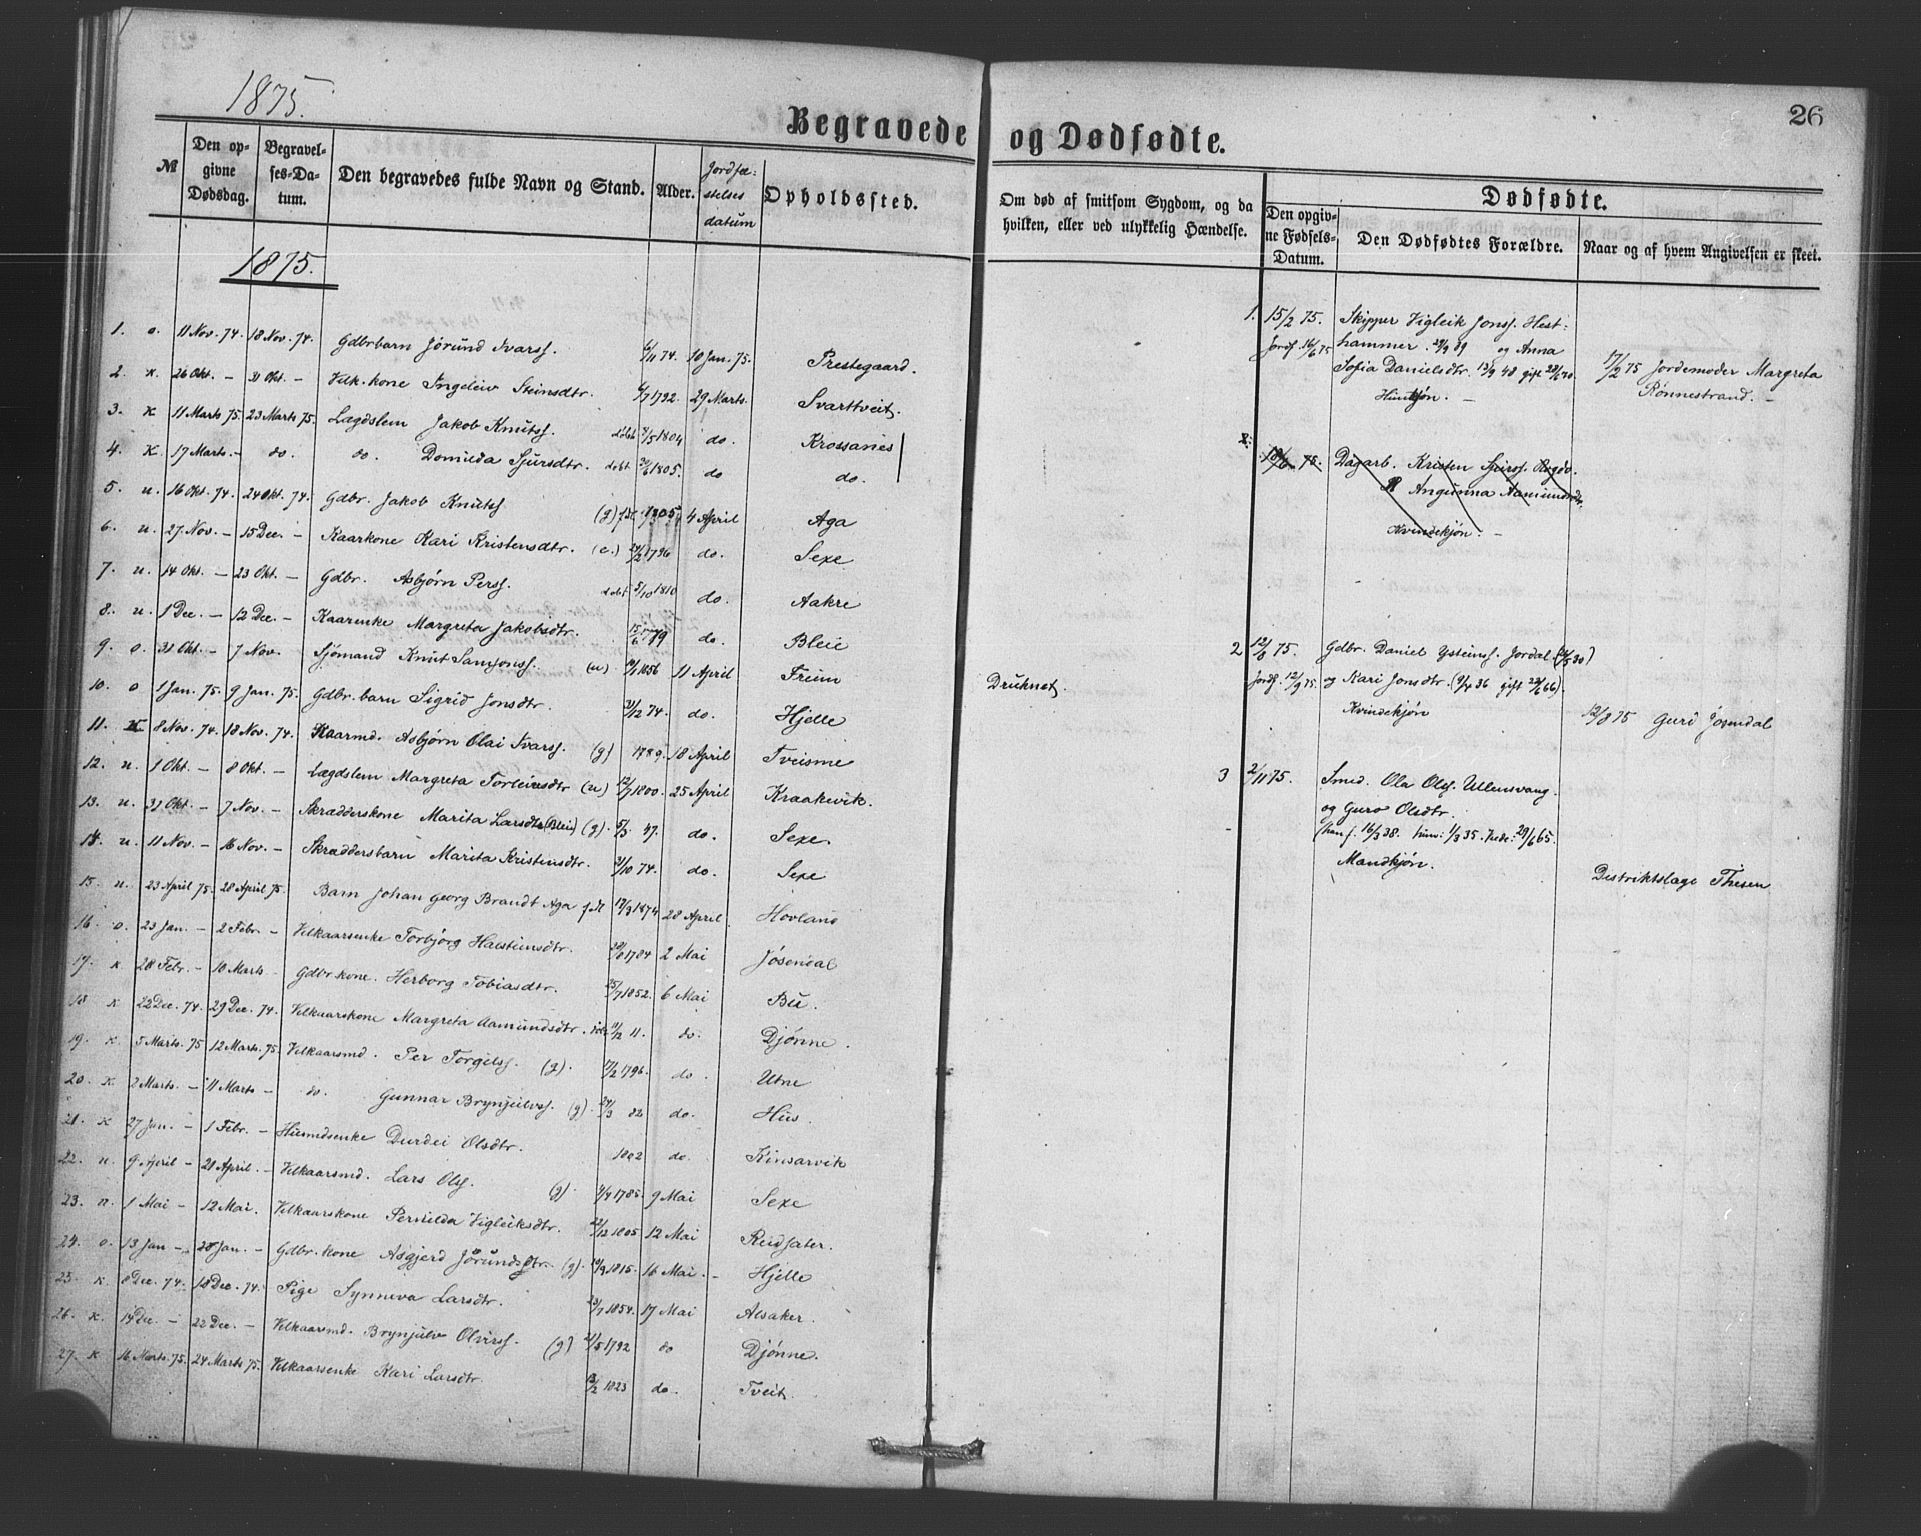 1875.
26
Begravede og Dødfødte.
№
Den opgivne Dødsdag.
Begravelses-Datum.
Den begravedes fulde Navn og Stand.
Alder.
Jordfæstelses datum
Opholdssted.
Om død af smitsom Sygdom, og da hvilken, eller ved ulykkelig Hændelse.
Dødfødte.
Den opgivne Fødsels-Datum.
Den Dødfødtes Forældre.
Naar og af hvem Angivelsen er skeet.
1875.
1. o. 11 Nov. 74. 18 Nov. 74. Gdbrbarn Jørund Ivarss. 6/11 74. 10 Jan. 75. Prestegaard.
2. K. 26 Okt. – 31 Okt. – Vilk.kone Ingeleiv Steinsdtr. 1792. 29 Marts. Svartveit.
3. K 11 Marts 75. 23 Marts 75. Lægdslem Jakob Knutss. døbt 1804 do. Krossanes
4. K 17 Marts. – do. do. Domilda Sjursdtr. døbt 1805. do do.
5. u. 16 Okt. 74. 24 Okt. 74. Gdbr. Jakob Knutss (g) 1805 4 April Aga
6. u. 27 Nov. – 15 Dec. – Kaarkone Kari Kristensdtr. (e.) 1796 do. Sexe
7. u. 14 Okt. – 23 Okt. – Gdbr. Asbjørn Perss. døbt 5/10 1810 do. Aakre
8. u. 1 Dec. – 12 Dec. – Kaarenke Margreta Jakobsdtr. 15/6 1789 do. Bleie
9. o. 31 Okt. – 7 Nov. Sjømand Knut Samsonss. (u) 1856 11 April Freim Druknet.
10. o 1 Jan. 75. 9 Jan. 75. Gdbr.barn Sigrid Jonsdtr. 31/12 74. do. Hjelle
11. K 8 Nov. 74. 18 Nov. 74. Kaarmd. Asbjørn Olai Ivarss. (g) 1789. 18 April Tveisme
12. u. 1 Okt. – 8 Okt. – Lægdslem Margreta Torleivsdtr (u) 12/7 1800. 25 April Kraakevik.
13. u. 31 Okt. – 7 Nov. – Skradderskone Marita Larsdtr (Bleie) (g). 5/3 47. do. Sexe
14. u. 11 Nov. – 16 Nov. – Skraddersbarn Marita Kristensdtr. 31/10 74. do. Sexe
15. u. 23 April 75. 28 April 75. Barn Johan Georg Brandt Aga 17/3 1874 28 April. Hovland
16. o. 23 Jan. – 2 Febr. – Vilkaarsenke Torbjørg Halsteinsdtr. 1784 2 Mai Jøsendal
17. K 28 Febr. – 10 Marts. Gdbr.kone. Herborg Tobiasdtr. 25/7 1852. 6 Mai Bu.
18 K 22 Dec. 74. 29 Dec. 74. Vilkaarskone Margreta Aamundsdtr. 11. do. Djønne.
19. K. 5 Marts. 75 12 Marts. 75. Vilkaarsmd. Per Torgilss. (g). 1796. do. Utne
20. K 2 Marts. – 11 Marts – do. Gunnar Brynjulvss. (g). 24/3 82 do. Hus.
21. K 27 Jan. – 1 Febr. – Husmdsenke Durdei Olsdtr. 1802 do. Kinsarvik
22. u. 9 April – 20 April. – Vilkaarsmd. Lars Olss. (g). 1785. 9 Mai Sexe
23. n. 1 Mai – 12 Mai. Vilkaarskone Pernilda Vigleiksdtr. 22/12 1805 12 Mai Reisæter.
24. o. 13 Jan – 28 Jan. – Gdbr.kone Asgjerd Jørundsdtr. (g). 1815. 16 Mai. – Hjelle
25. K. 8 Dec. 74. 18 Dec. 74. Pige Synneva Larsdtr. 23/7 1854. 17 Mai Alsaker.
26. K. 14 Dec. – 22 Dec. – Vilkaarsmd. Brynjulv Olvirss. (g) 1792 do Djønne.
27. K 16 Marts. 75. 24 Marts 75. Vilkaarsenke Kari Larsdtr. 1823 do. Tveit
1. 15/2 75. Skipper Vigleik Jonss. Hest-
Jordf. 16/6 75 hammer. og Anna
Sofia Danielsdtr. 13/9 48 gift
Hunkjøn. –
17/2 75 Jordemoder Margreta
Rønnestrand. –
2. 75. Dagarb. Kristen Sjurss. Bugdø.
Angunna Aamundsdtr.
Kvindekjøn. –
2 12/8 75. Gdbr. Daniel Ysteinss. Jordal
Jordf. 12/9 75. og Kari Jonsdtr. (9/4 36 gift 66).
Kvindekjøn
12/8 75 Guri Jøsendal
3 2/11 75. Smed. Ola Olss. Ullensvang.
og Guro Olsdtr.
(han f. 16/3 38. hun: 1/3 35. viede: 29/6 65.
Mandkjøn.
Distriktslæge Thesen